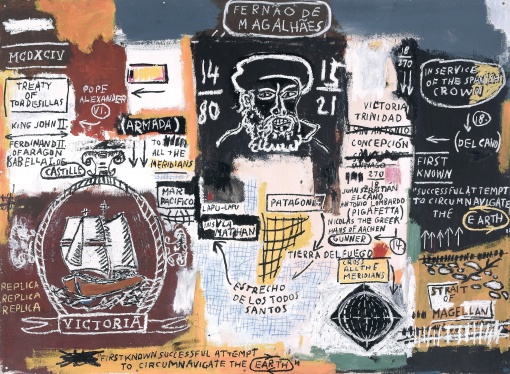 FERNÃO DE
MAGALHÃES
MCDXCIV
TREATY
OF
TORDESILLAS
POPE
ALEXANDER
VI.
KING JOHN II
FERDINAND II
OF ARAGON
CASTILLE
(ARMADA)
TO
ALL THE
MERIDIANS
MAR
PACIFICO
REPLICA
REPLICA
REPLICA
VICTORIA
14
80
15
21
18
270
VICTORIA
TRINIDAD
SAN ANTONIO
CONCEPCIÓN
SANTIAGO
270
JUAN SEBASTIAN
ELCANO
ANTONIO LOMBARDO
(PIGAFETTA)
NICOLAS THE GREEK
HANS OF AACHEN
GUNNER
14
LAPU-LAPU
INSULA
MATHAN
PATAGONI
TIERRA DEL FUEGO
CROSS
ALL THE
MERIDIANS
ESTRECHO
DE LOS TODOS
SANTOS
IN SERVICE
OF THE SPANISH
CROWN
18
(DEL CANO)
FIRST
KNOWN
"SUCCESSFUL ATTEMPT
TO CIRCUMNAVIGATE
THE
EARTH
STRAIT
OF
MAGELLAN
"FIRST KNOWN SUCCESSFUL ATTEMPT
TO CIRCUMNAVIGATE THE EARTH"